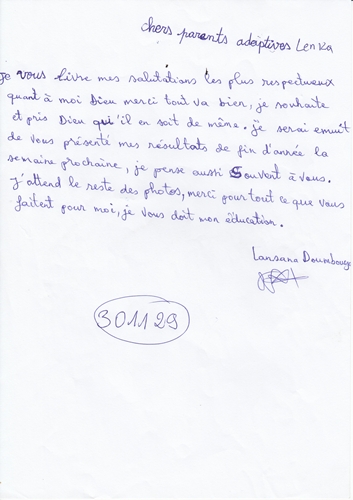 chers parents adoptives Lenka
Je vous livre mes salutations les plus respectueux
quant à moi Dieu merci tout va bien, je souhaite
et pris Dieu qu'il en soit de même. je serai emuit
de vous présenté mes résultats de fin d'année la
semaine prochaine, je pense aussi Souvent à vous.
J'attend le reste des photos, merci pour tout ce que vous
faitent pour moi, je vous doit mon éducation.
Lansana Doumbouya
301129